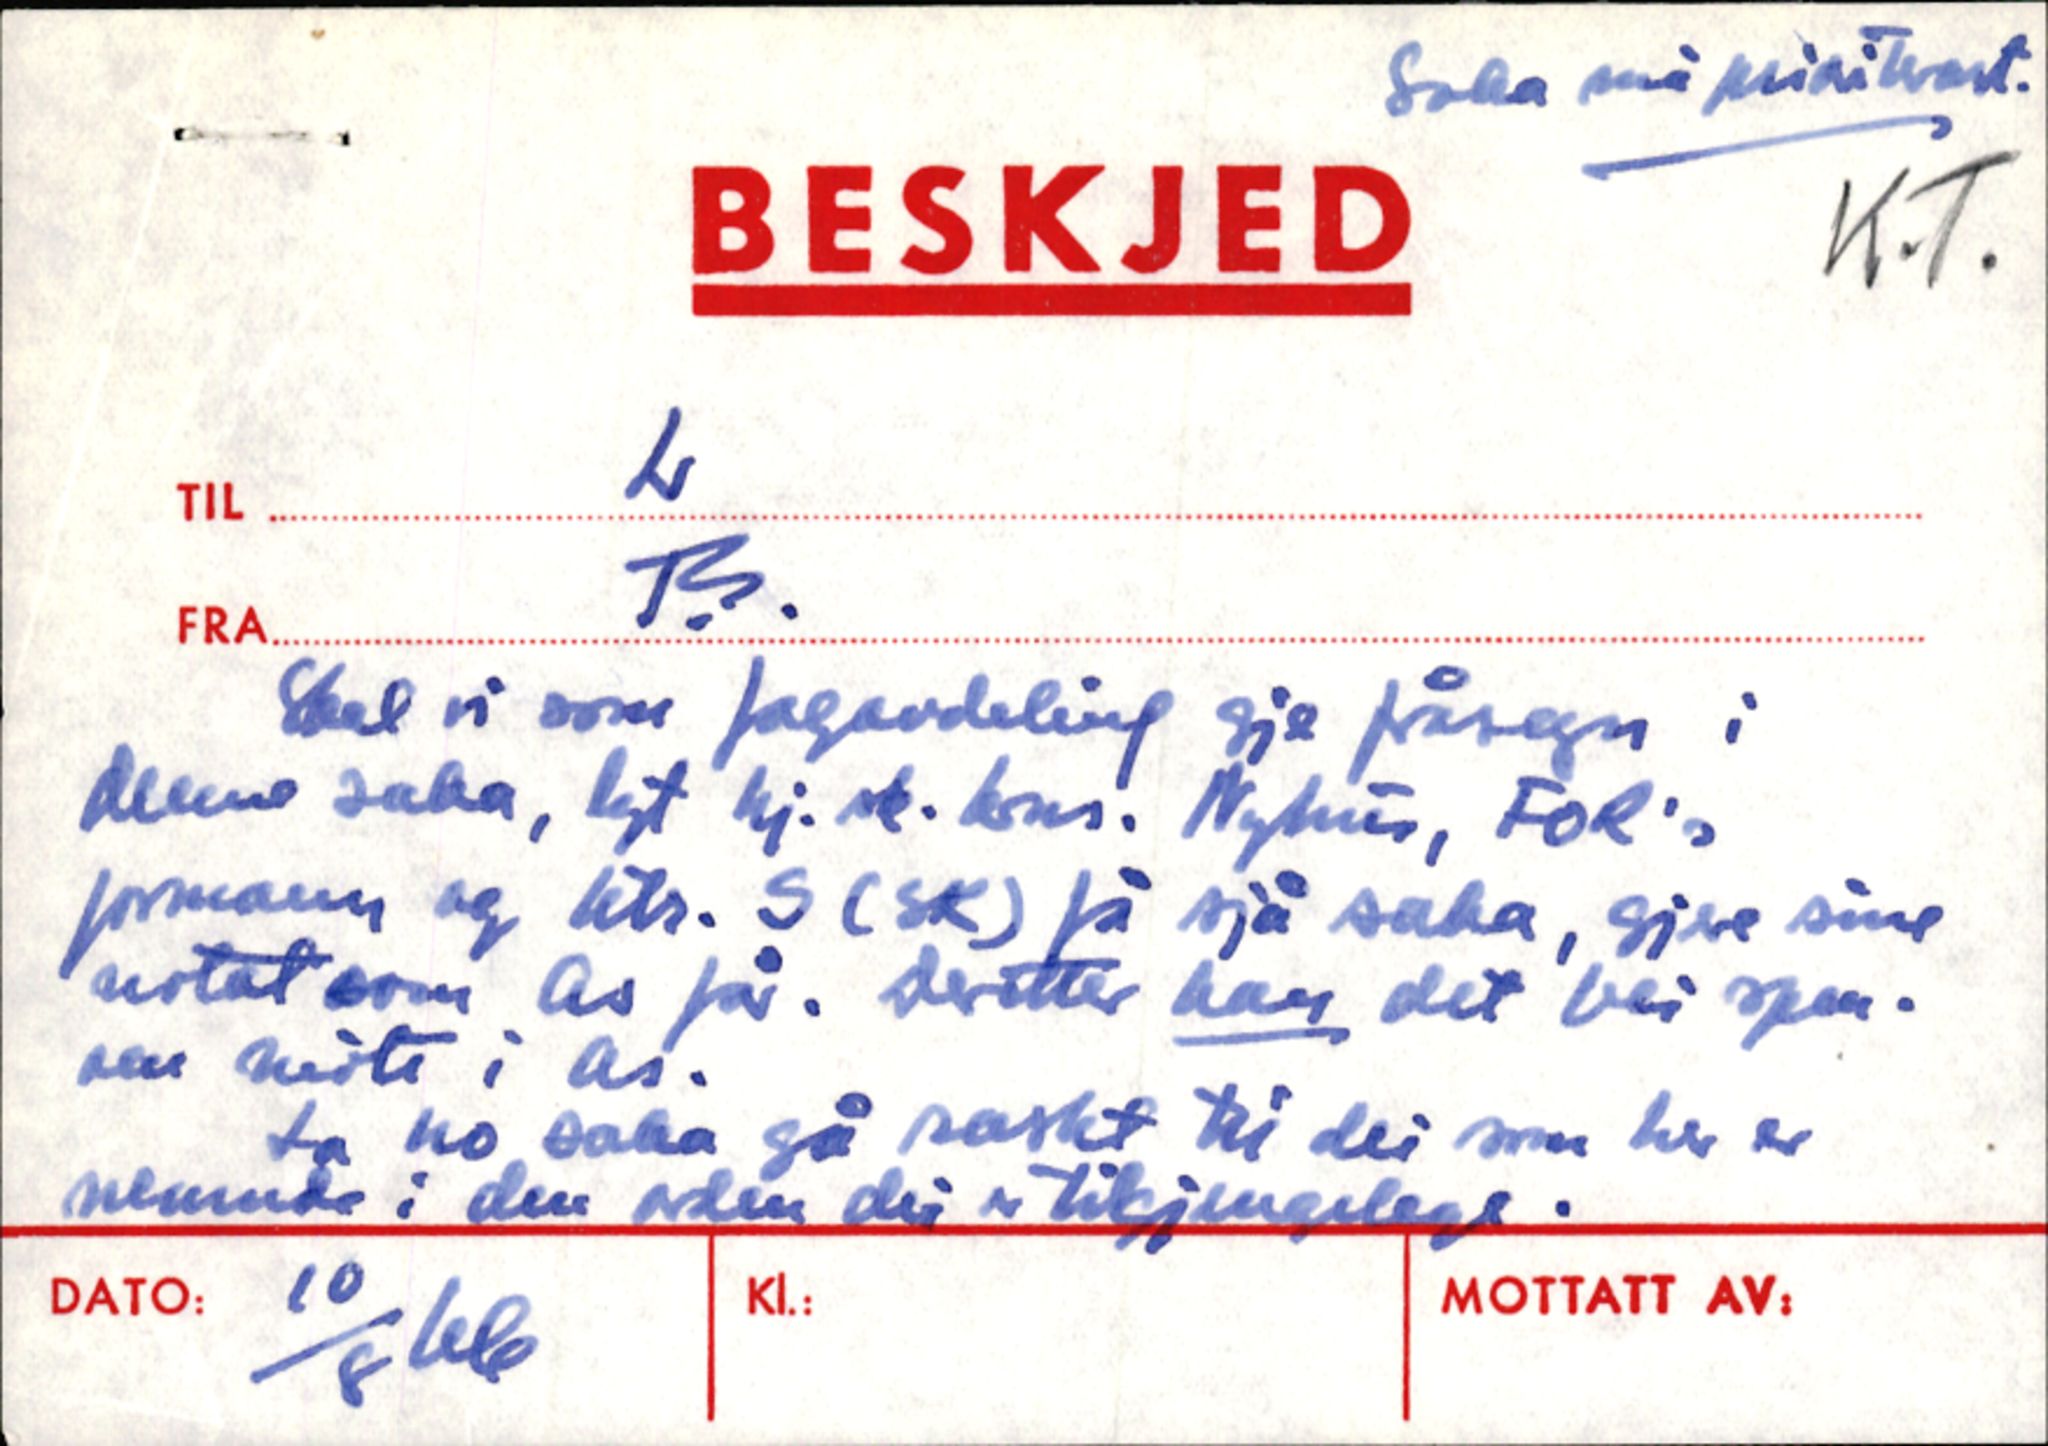 Saka må prioriterast.
BESKJED
K.T.
TIL
FRA
Skal vi som fagavdeling gje fråsegn i
denne saka, lyt hj. sk. kons. Nyhus, FOR's
formann og ktr. S (SK) få sjå saka, gjere sine
notat som As får. Deretter kan det bli
møte i As.
La no saka gå raskt til dei som her er
nemnde i den orden dei er tilgjengelege.
DATO: 10/8
Kl.:
MOTTATT AV: